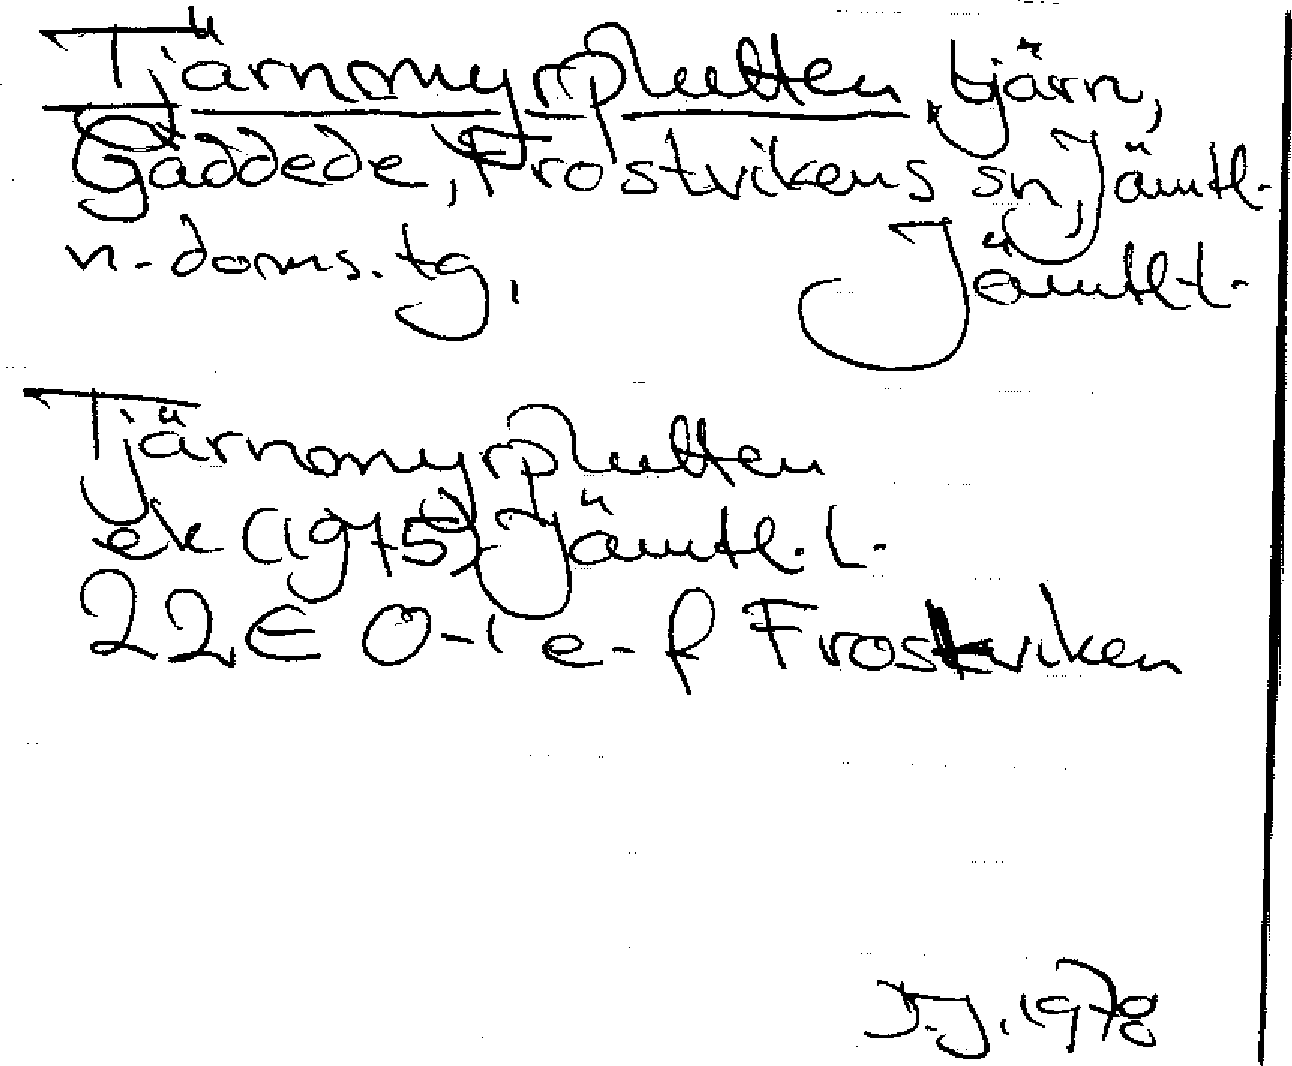 Tjärnmyrplutten, tjärn,
Gäddede, Frostvikens sn, Jämtl.
n. doms. tg, Jämtl. l.
Tjärnmyrplutten
ek (1975) Jämtl. l.
22E 0-1 e-f Frostviken
J.J. 1978